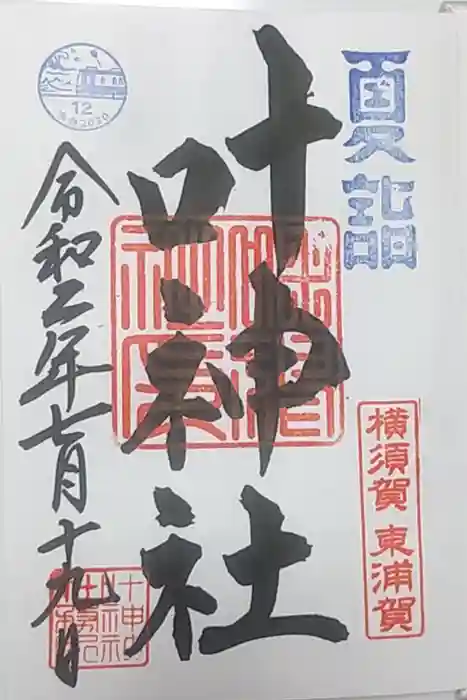 夏詣
横須賀 東浦賀
叶神社
令和二年七月十九日
12